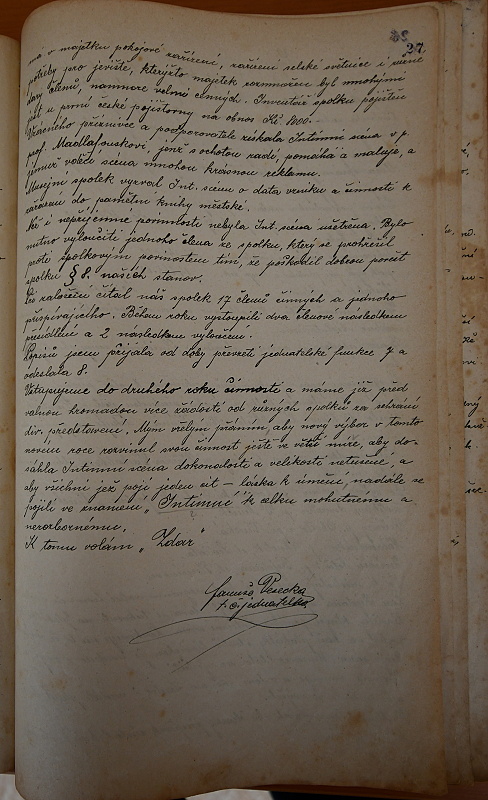 27
má v majetku pokojové zařízení, zařízení selské světnice i různé
potřeby pro jeviště, kterýžto majetek rozmnožen byl mnohými
dary členů, namnoze velmi cenných. Inventář spolku pojištěn
jest u první české pojišťovny na obnos Kč 8000.-
Vzácného příznivce a podporovatele získala Intimní scéna v p.
prof. Madlafouskovi, jenž s ochotou radí, pomáhá a maluje, a
jemuž vděčí scéna mnohou krásnou reklamu.
Musejní spolek vyzval Int. scénu o data vzniku a činnosti k
zařazení do pamětní knihy městské.
Než i nepříjemné povinnosti nebyla Int. scéna ušetřena. Bylo
nutno vyloučiti jednoho člena ze spolku, který se prohřešil
proti spolkovým povinnostem tím, že poškodil dobrou pověst
spolku § 8. našich stanov.
Po založení čítal náš spolek 17 členů činných a jednoho
přispívajícího. Během roku vystoupili dva členové následkem
přesídlení a 2 následkem vyloučení.
Dopisů jsem přijala od doby převzetí jednatelské funkce 7 a
odeslala 8.
Vstupujeme do druhého roku činnosti a máme již před
valnou hromadou více žádostí od různých spolků za sehrání
div. představení. Mým vřelým přáním, aby nový výbor v tomto
novém roce rozvinul svou činnost ještě ve větší míře, aby do-
sáhla Intimní scéna dokonalosti a velikosti netušené, a
aby všichni jež pojí jeden cit – láska k umění, nadále se
pojili ve znamení „Intimné" k celku mohutnému a
nerozbornému.
K tomu volám „Zdar"
t. č. jednatelka